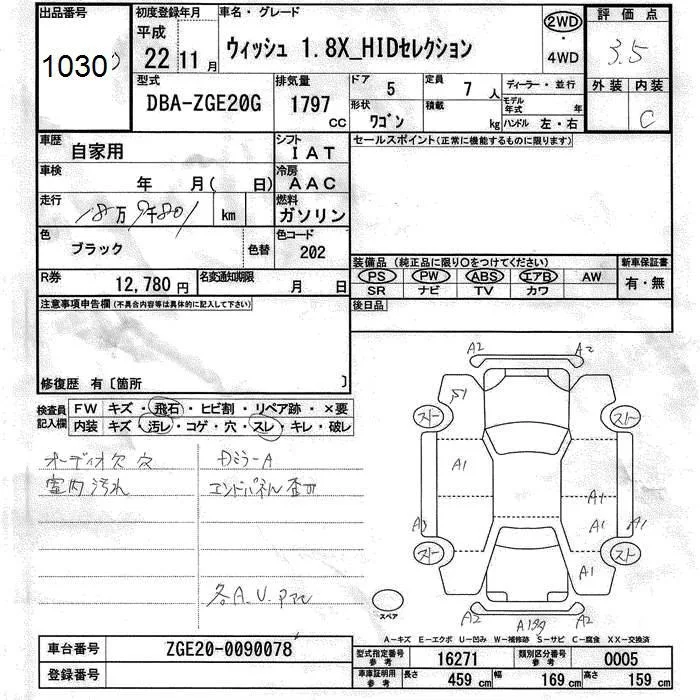 出品番号 初度登録年月 車名・グレード 評価点
1030
平成 22 11月 ウィッシュ 1.8X_HIDセレクション 2WD・4WD 3.5
型式 排気量 ドア 5 定員 7人 ディーラー・並行 外装 内装
DBA-ZGE20G 1797cc 形状 ワゴン 積載 kg モデル年式 年 ハンドル 左・右 C
車歴 自家用 シフト IAT セールスポイント(正常に機能するものに限ります)
車検 年 月(日) 冷房 AAC
走行 18万9801 km 燃料 ガソリン
色 ブラック 色替 色コード 202
装備品(純正品に限り○をつけてください) 新車保証書
R券 12,780円 名変通知期限 月 日
PS PW ABS エアB AW 有・無
SR ナビ TV カワ
注意事項申告欄(不具合内容等は具体的に記入して下さい) 後日品
修復歴 有〔箇所 〕
検査員記入欄 FW キズ・飛石・ヒビ割・リペア跡・×要
内装 キズ・汚レ・コゲ・穴・スレ・キレ・破レ
オーディオ欠 穴
室内汚れ エンドパネル
各A.U
A2 A2
ストー ストー
A1
A1
A1 A1
ストー ストー
A1
スペア
A2 A2
A-キズ E-エクボ U-凹み W-補修跡 S-サビ C-腐食 XX-交換済
車台番号 ZGE20-0090078
登録番号
型式指定番号 参考 16271 類別区分番号 参考 0005
車庫証明用 参考 長さ 459cm 幅 169cm 高さ 159cm